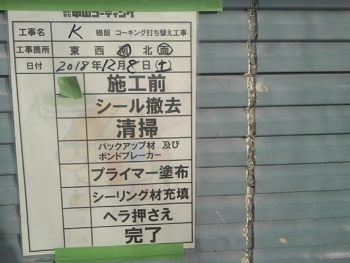 ㈱中山コーティング
工事名 K 様邸 コーキング打ち替え工事
工事箇所 東 西 南 北 面
日付 2018年12月8日(土)
施工前
シール撤去
清掃
バックアップ材 及び
ボンドブレーカー
プライマー塗布
シーリング材充填
ヘラ押さえ
完了